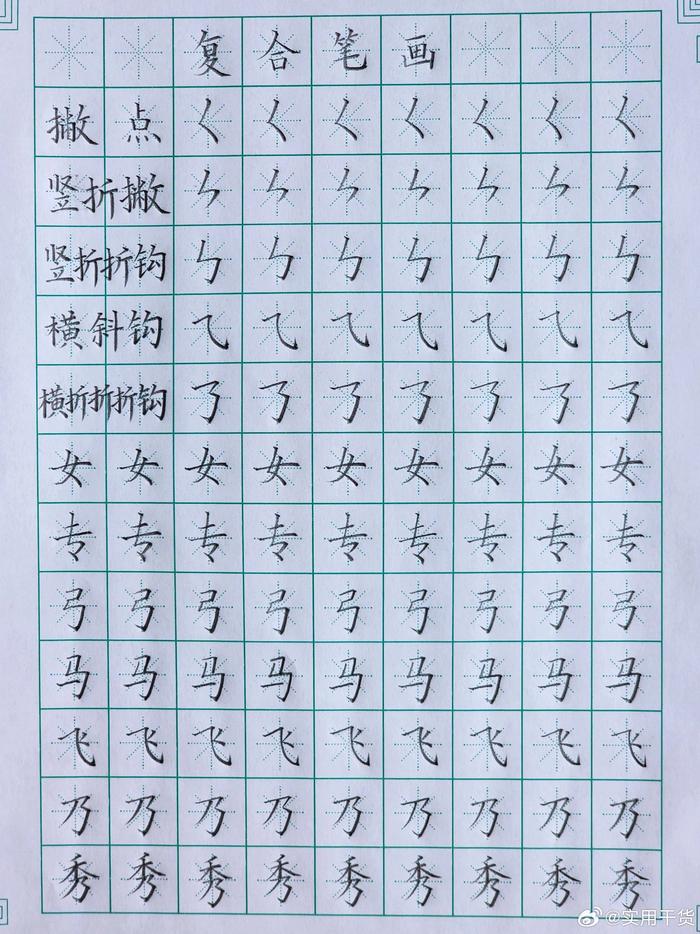 复合笔画
撇点 く く く く く く く
竖折撇 ㄣ ㄣ ㄣ ㄣ ㄣ ㄣ ㄣ
竖折折钩 ㇉ ㇉ ㇉ ㇉ ㇉ ㇉ ㇉
横斜钩 ⺄ ⺄ ⺄ ⺄ ⺄ ⺄ ⺄
横折折折钩 ㇡ ㇡ ㇡ ㇡ ㇡ ㇡ ㇡
女女女女女女女女女
专专专专专专专专专
弓弓弓弓弓弓弓弓弓
马马马马马马马马马
飞飞飞飞飞飞飞飞飞
乃乃乃乃乃乃乃乃乃
秀秀秀秀秀秀秀秀秀
@实用干货